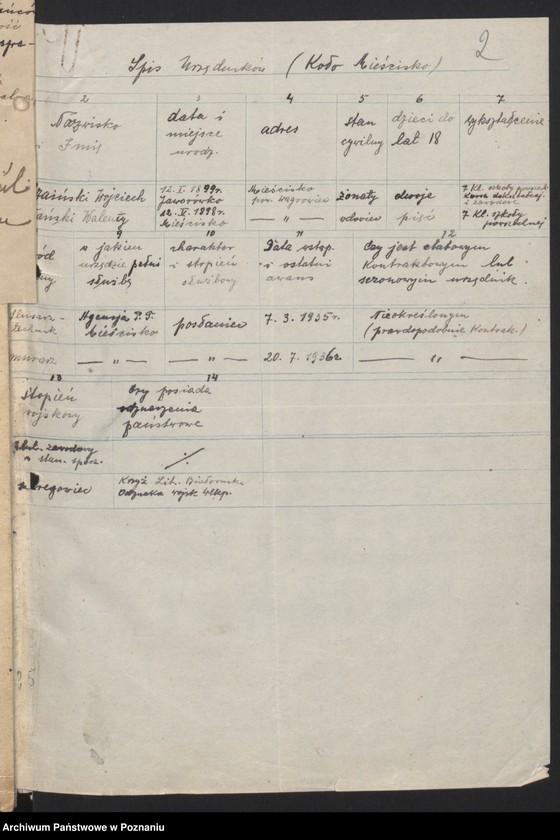 2
Spis Urzędników (Koło Mieścisko)
2 3 4 5 6 7
Nazwisko Imię
data i miejsce urodz.
adres
stan cywilny
dzieci do lat 18
wykształcenie
Wojciech
12. 1899 r. Jaworówko
Mieścisko pow. Wągrowiec
żonaty
dwoje
7 Kl. szkoły
i zawodowe
Walenty
1898 r. Mieścisko
— " —
wdowiec
pięć
7 Kl. szkoły powszechnej
9 10 11 12
w jakim urzędzie pełni służbę
charakter i stopień służbowy
Data wstąp. i ostatni awans
Czy jest etatowym Kontraktowym lub sezonowym urzędnik.
technik
Agencja P.T. Mieścisko
posłaniec
7. 3. 1935 r.
Nieokreślonym (prawdopodobnie Kontrak.)
murarz
— " —
— " —
20. 7. 1936 r.
— " —
13 14
stopień wojskowy
Czy posiada odznaczenia państwowe
zawodowy
w stan. spocz.
Krzyż Lit.
Odznaka wojsk wlkp.
Archiwum Państwowe w Poznaniu